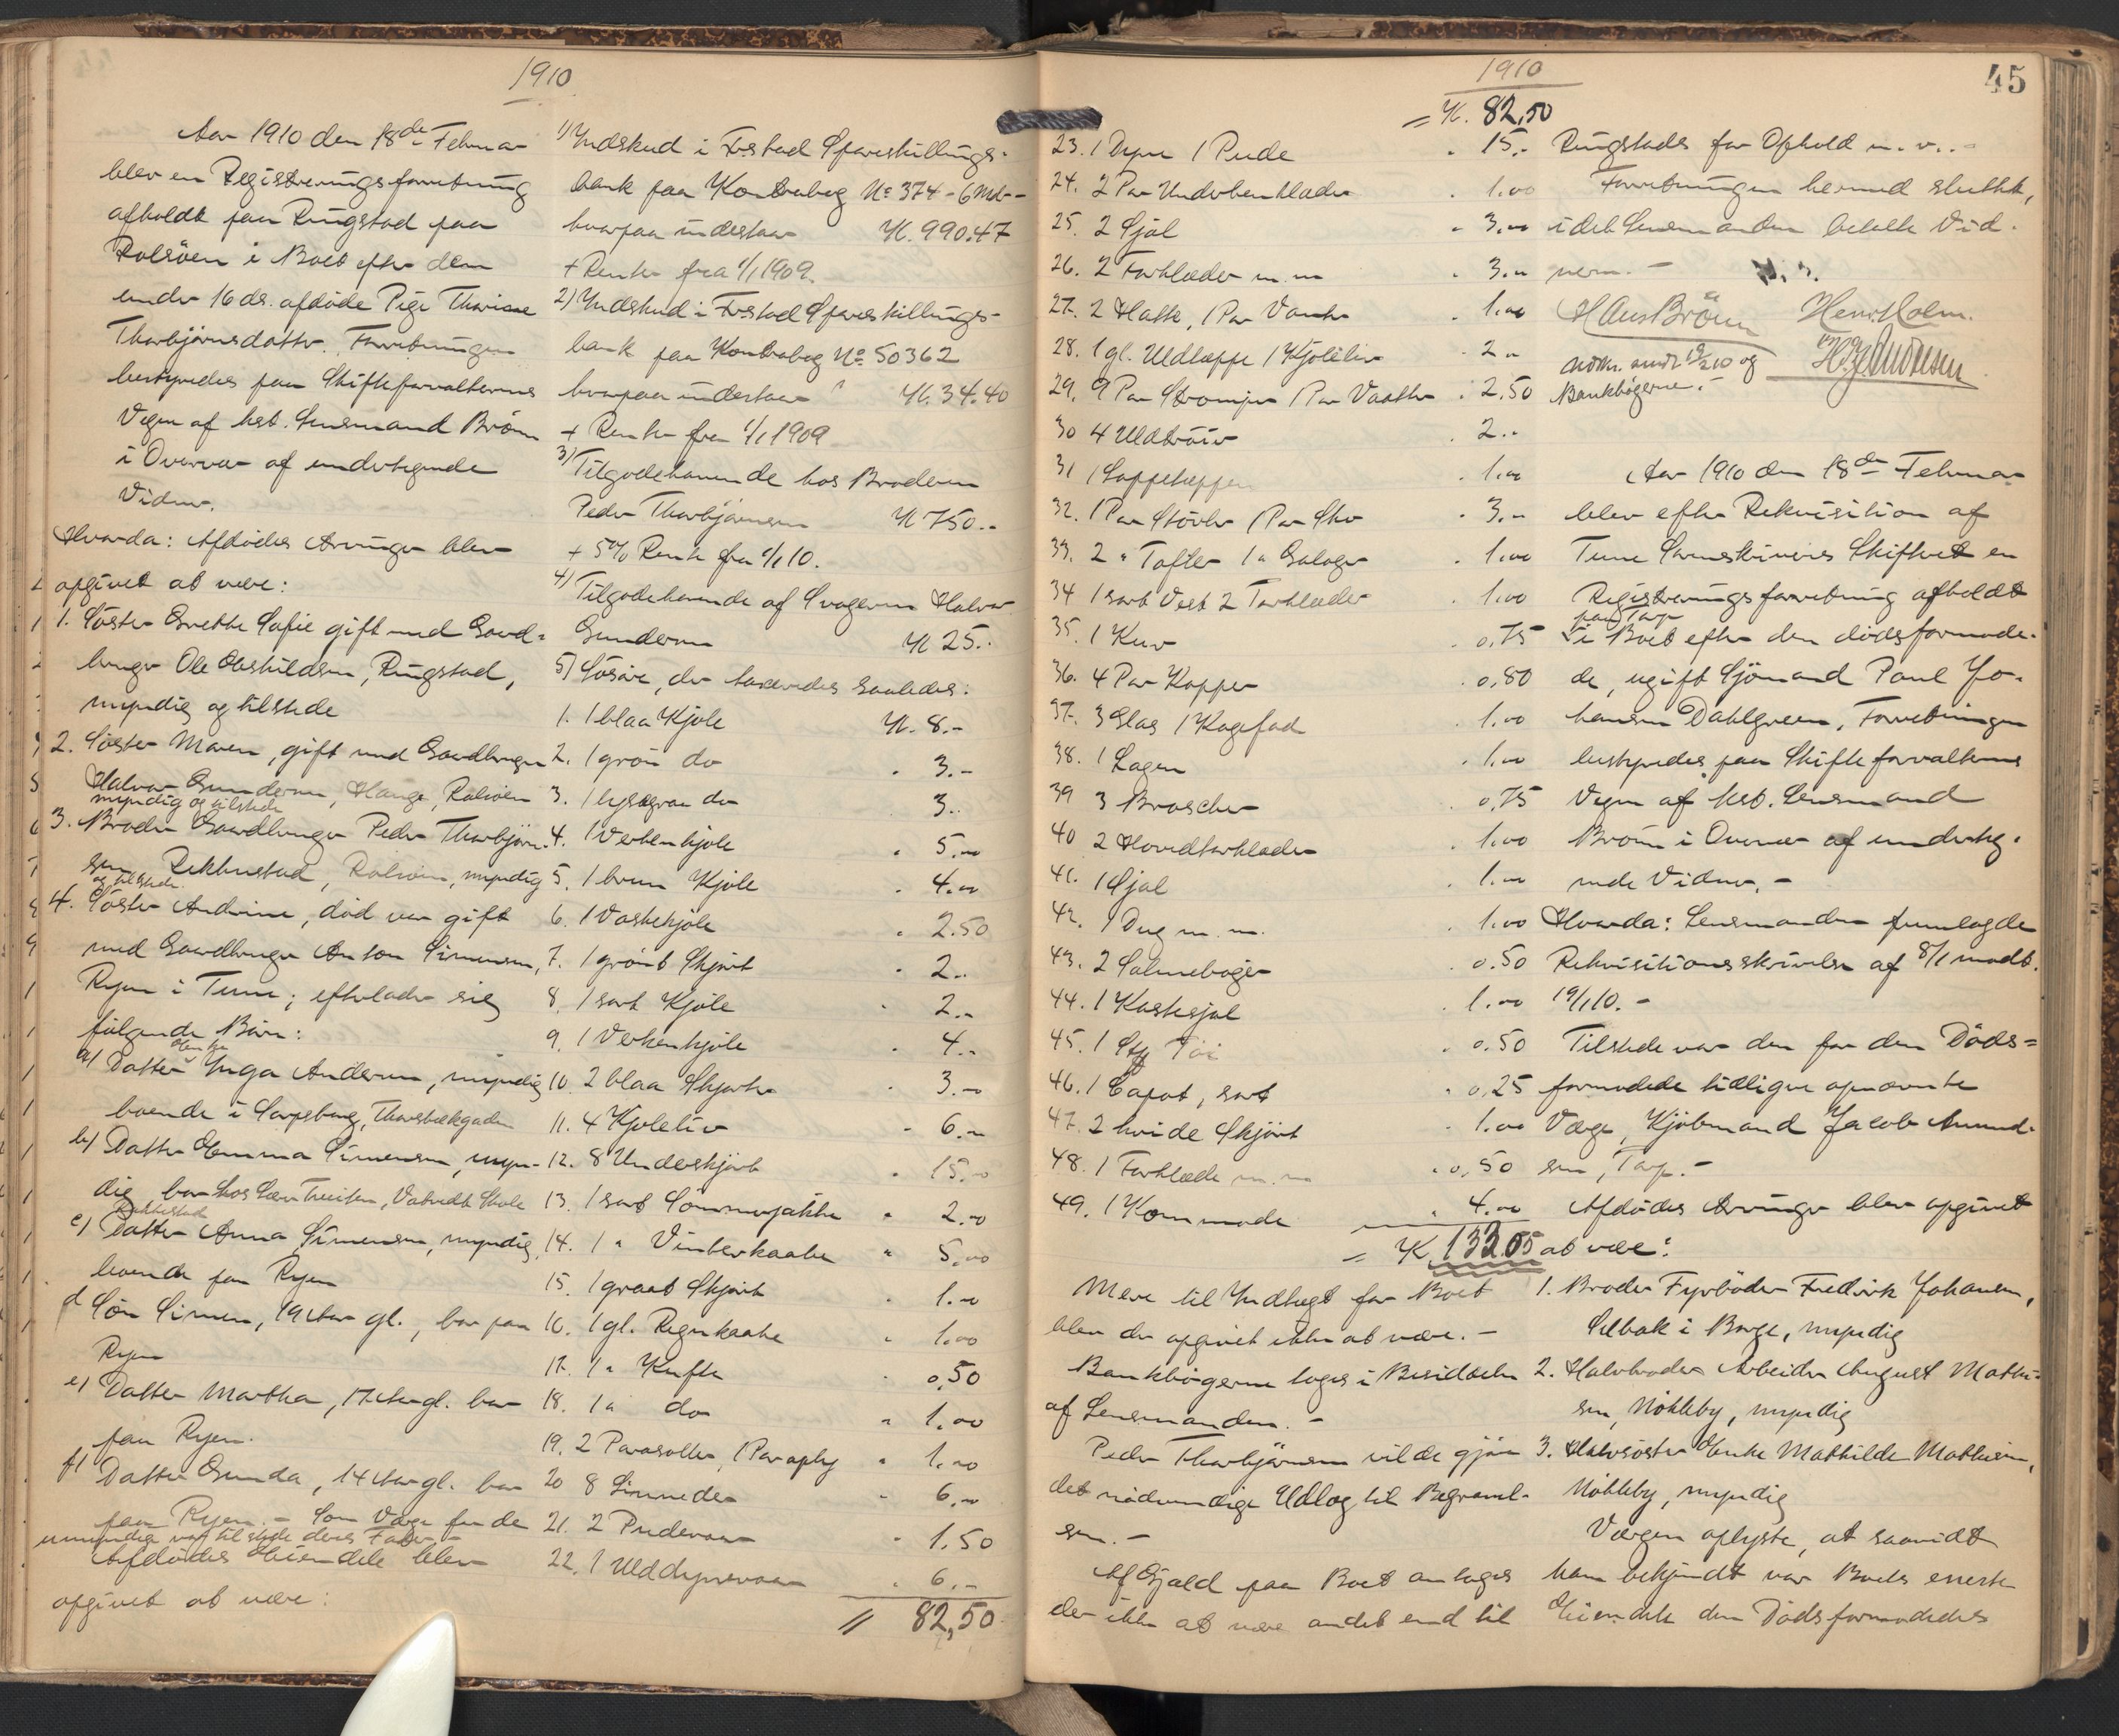 1910
Aar 1910 den 18de Februar
blev en Registreringsforretning
afholdt paa Ringstad paa
Rolsöen i Boet efter den
under 16 ds. afdöde Pige Thorine
Thorbjörnsdatter. Forretningen
bestyredes paa Skifteforvalterens
Vegne af kst. Lensmand Bröun
i Overvær af undertegnede
Vidner.
Hvorda: Afdödes Arvinger blev
opgivet at være:
1. Söster Grethe Sofie gift med Gaard-
bruger Ole Eskildsen, Ringstad,
myndig og tilstede
2. Söster Maren, gift med Gaardbruger
Halvor Gundersen, Hauge, Rolsöen
myndig og tilstede
3. Broder Gaardbruger Peder Thorbjörn-
sen Rekkustad, Rolsöen, myndig
og tilstede.
4. Söster Andrine, död var gift
med Gaardbruger Anton Simensen,
Ryen i Tune; efterlader sig
fölgende Börn:
a) Datter Enke Inga Andersen, myndig
boende i Sarpsborg, Thorsbækgaden
b) Datter Emma Simensen, myn-
dig, bor hos Lærer Treiten, Vatvedt Skole
Rakkestad
c) Datter Anna Simensen, myndig,
boende paa Ryen
d Sön Simen, 19 Aar gl., bor paa
Ryen
e) Datter Martha, 17 Aar gl. bor
paa Ryen.
f) Datter Gunda, 14 Aar gl. bor
paa Ryen. - Som Værge for de
umyndige var tilstede deres Fader -
Afdödes Eiendele blev
opgivet at være:
1) Indskud i Fr.stad Spareskillings-
bank paa Kontrabog No 374 - 6 Md -
hvorpaa indestaar K. 990.47
+ Renter fra 1/1 1909.
2) Indskud i Fr.stad Spareskillings-
bank paa Kontrabog No 50362
hvorpaa indestaar K. 34.40
+ Renter fra 1/1 1909
3) Tilgodehavende hos Broderen
Peder Thorbjörnsen K 750..
+ 5% Rente fra 1/1 10.
4) Tilgodehavende af Svogeren Halvor
Gundersen K 25..
5) Lösöre, der taxeredes saaledes:
1. 1 blaa Kjole K. 8.-
2. 1 grön do " 3.-
3. 1 lysegraa do 3..
4. 1 Verkenkjole " 5.00
5. 1 brun Kjole " 4.00
6. 1 Vaskekjole " 2.50
7. 1 grönt Skjört " 2..
8. 1 sort Kjole " 2..
9. 1 Verkenkjole - 4..
10. 2 blaa Skjörter " 3.00
11. 4 Kjoleliv " 6.00
12. 8 Underskjört " 15.00
13. 1 sort Sommerjakke " 2.00
14. 1 " Vinterkaabe " 5.00
15. 1 graat Skjört " 1.00
16. 1 gl. Regnkaabe " 1.00
17. 1 " Kufte " 0,50
18. 1 " do " 1.00
19. 2 Parasoller, 1 Paraply " 1.00
20 8 Linneder " 6.00
21. 2 Pudevaar " 1.50
22. 1 Ulddynevaar " 6.-
// 82,50
1910
45
= K. 82,50
23. 1 Dyne 1 Pude " 15.-
24. 2 Par Underbenklæder " 1.00
25. 2 Sjal " 3.00
26. 2 Forklæder m.m " 3.00
27. 2 Hatte, 1 Par Vanter " 1.00
28. 1 gl. Uldteppe 1 Kjoleliv " 2..
29. 9 Par Strömper 1 Par Vaatter " 2.50
30 4 Uldtröier " 2..
31 1 Loppeteppe " 1.00
32. 1 Par Stövler 1 Par Sko " 3..
33. 2 " Tofler 1 " Galoger " 1.00
34 1 sort Vest 2 Forklæder " 1.00
35. 1 Kurv " 0.75
36. 4 Par Kopper " 0,80
37. 3 Glas 1 Kagefad " 1.00
38. 1 Lagen " 1.00
39 3 Broscher " 0,75
40 2 Hovedtørklæder " 1.00
41. 1 Sjal " 1.00
42. 1 Dug m.m. " 1.00
43. 2 Salmebøger " 0.50
44. 1 Kastesjal " 1.00
45. 1 Stk Töi " 0.50
46. 1 Capot, sort " 0,25
47. 2 hvide Skjört " 1.00
48. 1 Forklæde m.m " 0,50
49. 1 Kommode " 4.00
= K 132.05
Mere til Indtægt for Boet
blev der opgivet ikke at være. -
Bankbögerne toges i Besiddelse
af Lensmanden. -
Peder Thorbjörnsen vilde gjöre
det nödvendige Udlæg til Begravel-
sen. -
Af Gjæld paa Boet antoges
der ikke at være andet end til
Ringstads for Ophold m. v. . -
Forretningen hermed sluttet,
idet Lensmanden betalte Vid-
nerne. -
Hans Bröun Henr. Holm.
Bankbögerne. -
Aar 1910 den 18de Februar
blev efter Rekvisition af
Tune Sorenskriveris Skifteret en
Registreringsforretning afholdt
paa Torp
i Boet efter den dödsformode-
de, ugift Sjömand Paul Jo-
hansen Dahlgreen. Forretningen
bestyredes paa Skifteforvalterens
Vegne af kst. Lensmand
Bröun i Overvær af underteg-
nede Vidner. -
Hvorda: Lensmanden fremlagde
Rekvisitionsskrivelse af 8/1 modt.
19/1 10. -
Tilstede var den for den Döds-
formodede tidligere opnævnte
Værge, Kjöbmand Jacob Amund-
sen, Torp. -
Afdödes Arvinger blev opgivet
at være:
1. Broder Fyrböder Fredrik Johansen,
Selbak i Borge, myndig
2. Halvbroder Arbeider August Mathi-
sen, Nökleby, myndig
3. Halvsöster Enke Mathilde Mathisen,
Nökleby, myndig
Værgen oplyste, at saavidt
ham bekjendt var Boets eneste
Eiendele den Dödsformodedes